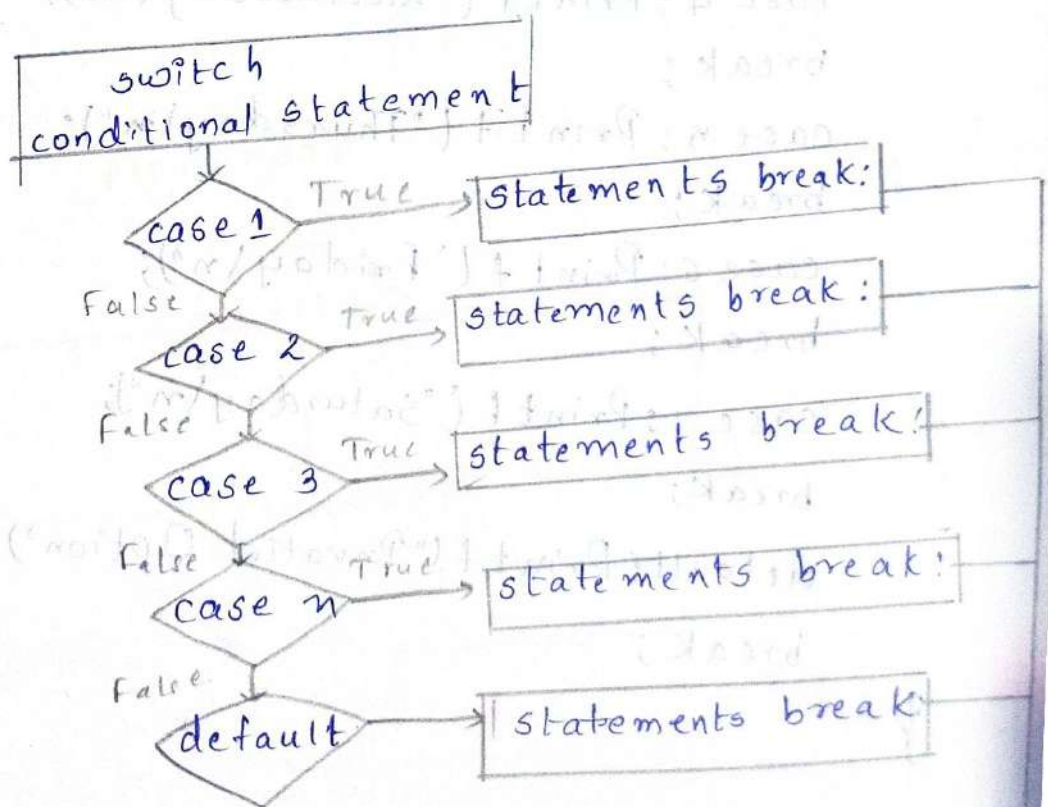 switch
conditional statement
case 1
True
statements break:
False
case 2
True
statements break:
False
case 3
True
statements break:
False
case n
True
statements break:
False
default
statements break: